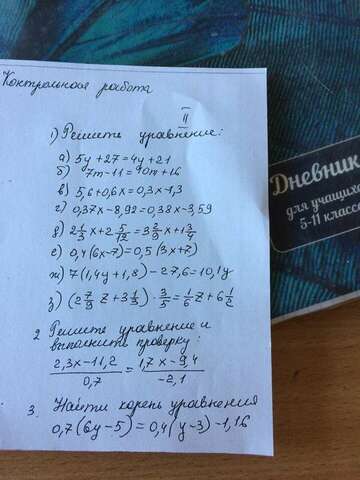 Контрольная работа
II
1) Решите уравнение:
а) 5у + 27 = 4у + 21
б) 7m - 11 = 10m + 16
в) 5,6 + 0,6x = 0,3x - 1,3
г) 0,37x - 8,92 = 0,38x - 3,59
д) 2 1/3 x + 2 5/12 = 3 2/9 x + 1 3/4
е) 0,4(6x - 7) = 0,5(3x + 7)
ж) 7(1,4у + 1,8) - 27,6 = 10,1у
з) (2 7/9 z + 3 1/3) · 3/5 = 1/6 z + 6 1/2
2 Решите уравнение и
выполнить проверку:
(2,3x - 11,2)/0,7 = (1,7x - 9,4)/-2,1
3. Найти корень уравнения
0,7(6у - 5) = 0,4(у - 3) - 1,16
Дневник
для учащихся
5-11 класса